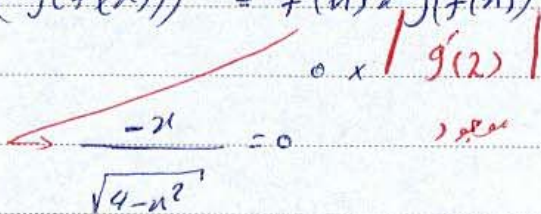 (g(f(x)))' = f'(x) x g'(f(x))
0 × | g'(2) |
-x / √(4-x²) = 0 موجود